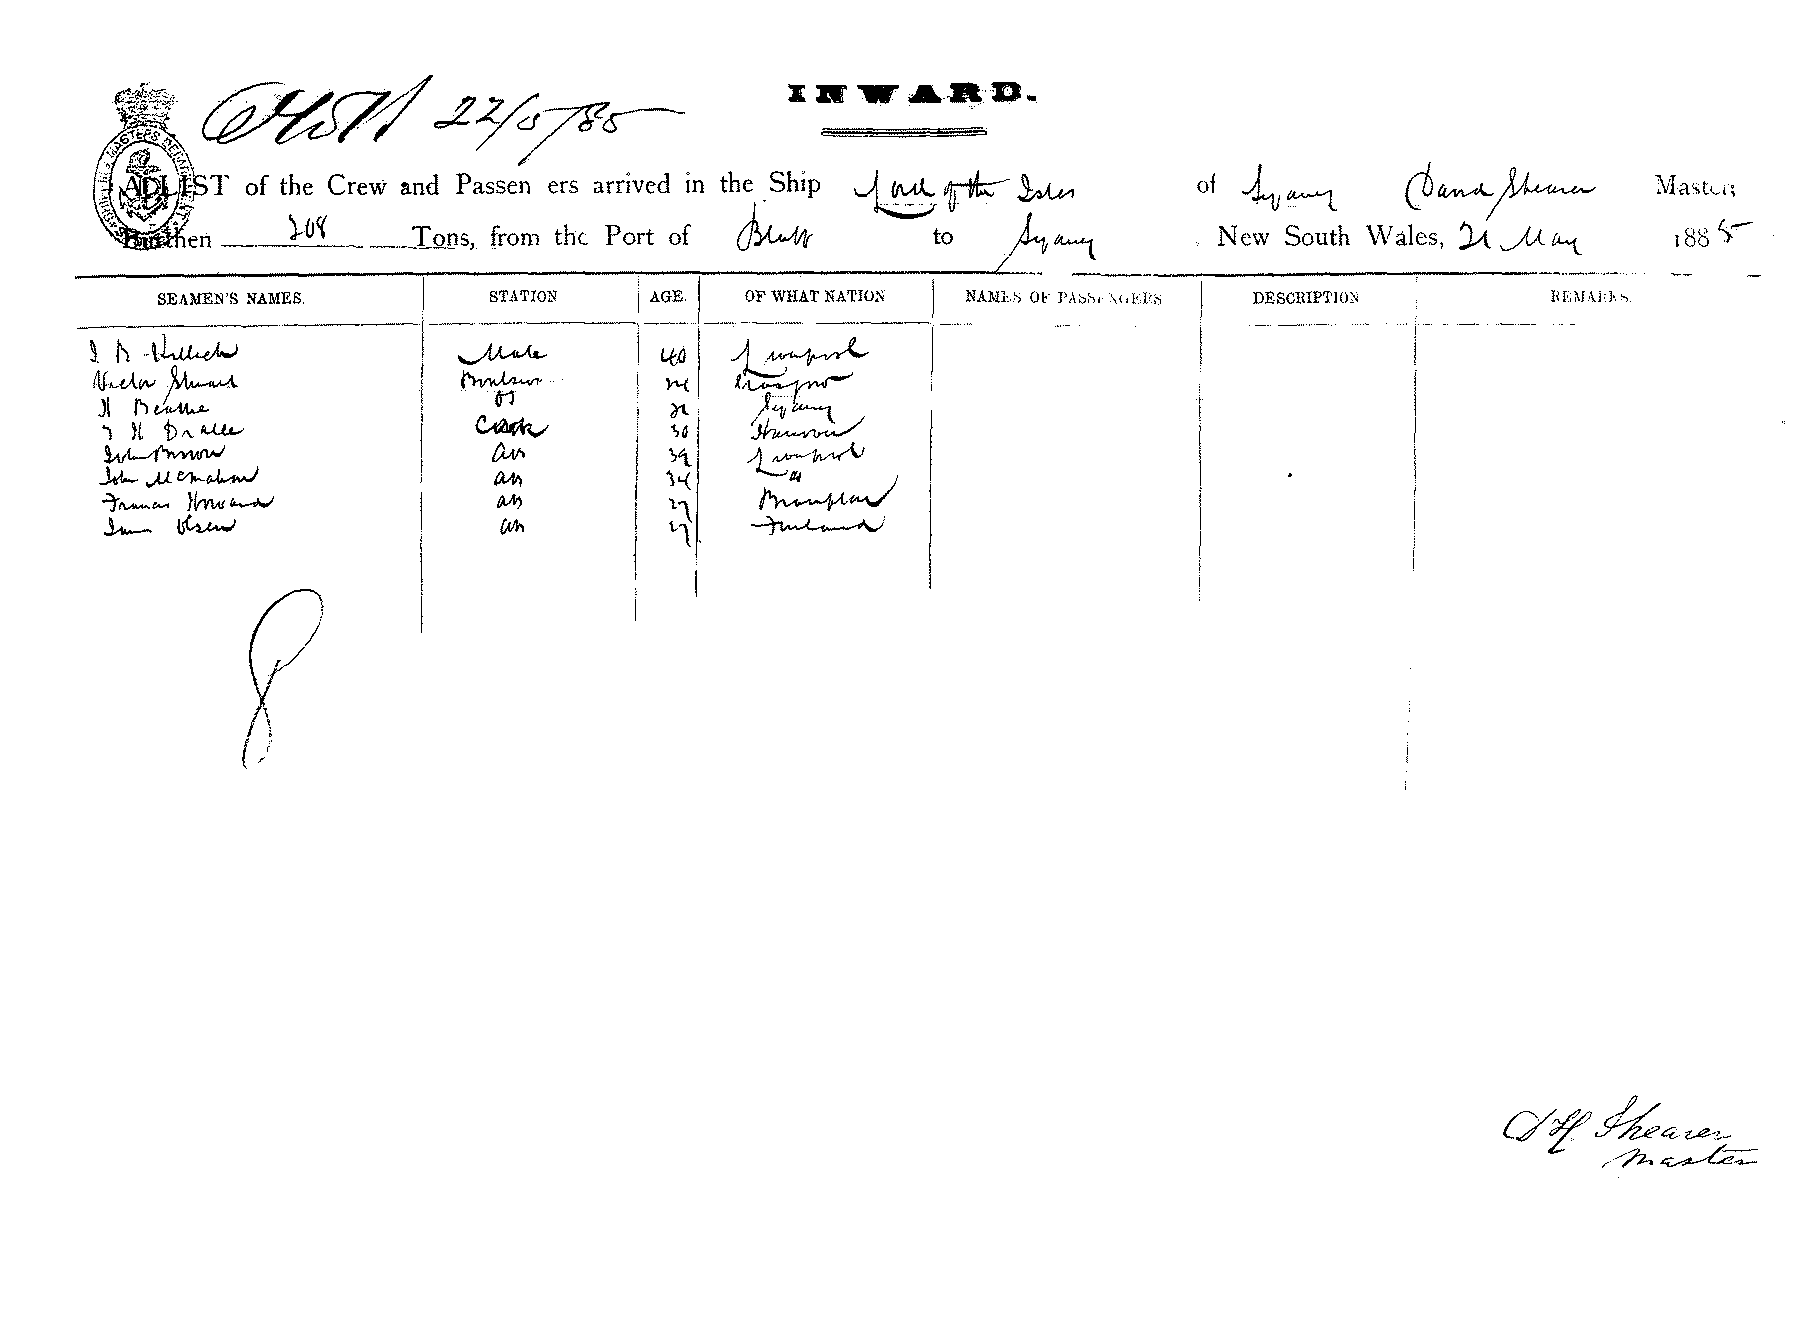 INWARD.
22/5/85
A LIST of the Crew and Passen ers arrived in the Ship Lord of the Isles of Sydney David Shearer Master,
Burthen 208 Tons, from the Port of Bluff to Sydney New South Wales, 21 May 1885
SEAMEN'S NAMES. STATION AGE. OF WHAT NATION NAMES OF PASSENGERS DESCRIPTION REMARKS.
Mate 40 Liverpool
Victor Stuart 24 Glasgow
H Beattie OS 21 Sydney
H Cook 30 Hanover
John Brown AB 39 Liverpool
John McMahon AB 34 "
Francis Howard AB 27 Brampton
Olsen AB 27 Finland
8
D H Shearer
Master